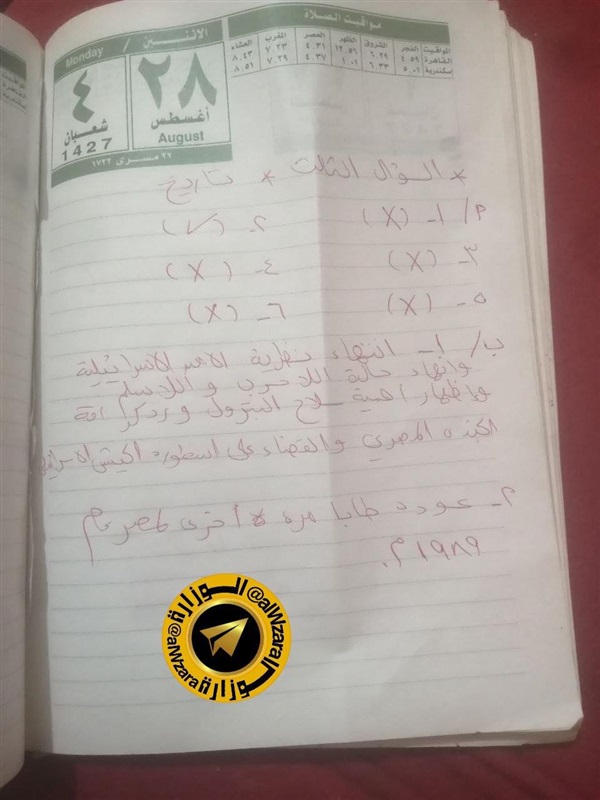 مواقيت الصلاة
المواقيت الفجر الشروق الظهر العصر المغرب العشاء
القاهرة ٤.٥٩ ٦.٢٩ ١٢.٥٦ ٤.٣١ ٧.٢٣ ٨.٤٣
إسكندرية ٥.٠١ ٦.٣٣ ١.٠١ ٤.٣٧ ٧.٢٩ ٨.٥١
الاثنين / Monday
٢٨ ٤
أغسطس شعبان
August 1427
٢٢ مسرى ١٧٢٢
* السؤال الثالث * تاريخ
١- (X) ٢- (✓)
٣- (X) ٤- (X)
٥- (X) ٦- (X)
ب/ ١- انتهاء نظرية الأمن الإسرائيلية
وانهاء حالة اللا حرب واللا سلم
واظهار أهمية سلاح البترول
المصري والقضاء على اسطورة الجيش
٢- عودة طابا مره أخرى لمصر عام
١٩٨٩م.
الوزارة @alWzara
الوزارة @alWzara